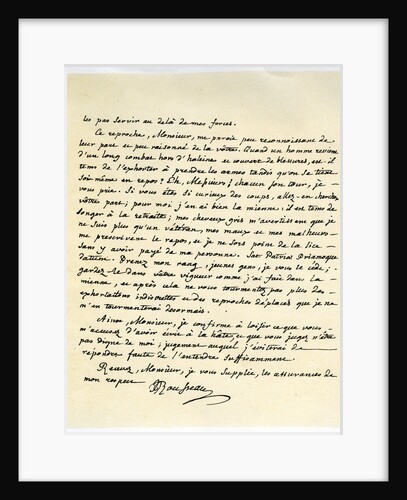 les pas servir au delà de mes forces.
Ce reproche, Monsieur, me paroit peu reconnoissant de
leur part et peu raisonné de la vôtre. Quand un homme revient
d'un long combat hors d'haleine et couvert de blessures, est-il
tems de l'exhorter à prendre les armes tandis qu'on se tient
soi-même en repos? Eh, Messieurs; chacun son tour, je
vous prie. Si vous êtes si curieux des coups, allez-en chercher
vôtre part; pour moi, j'en ai bien la mienne: il est tems de
songer à la retraite; mes cheveux gris m'avertissent que je
ne suis plus qu'un vétéran, mes maux et mes malheurs
me prescrivent le repos, et je ne sors point de la lice
sans y avoir payé de ma personne. Sat Patriæ Priamoque
datum. Prenez mon rang, jeunes gens, je vous le cède;
gardez-le dans vôtre vigueur comme j'ai fait dans la
mienne, et après cela ne vous tourmentez pas plus des
exhortations indiscrettes et des reproches déplacés que je ne
m'en tourmenterai desormais.
Ainsi, Monsieur, je confirme à loisir ce que vous
m'accusez d'avoir écrit à la hâte, et que vous jugez n'être
pas digne de moi; jugement auquel j'éviterai de
repondre faute de l'entendre suffisamment.
Recevez, Monsieur, je vous supplie, les assurances de
mon respect JJRousseau